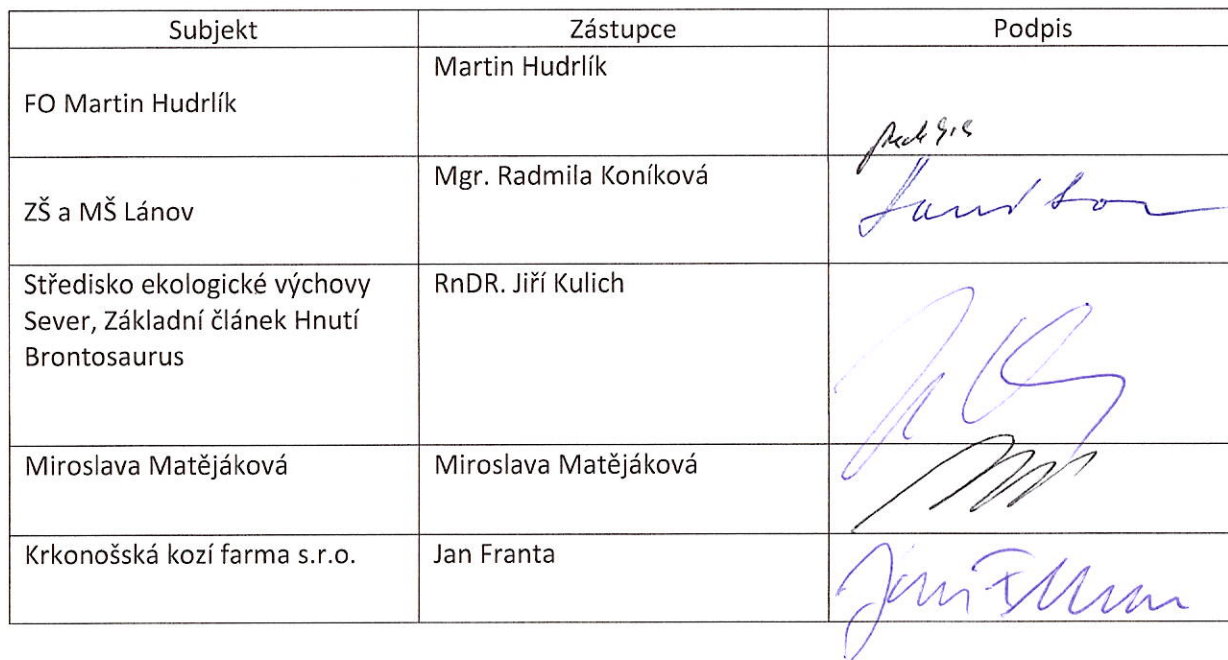 Subjekt Zástupce Podpis
FO Martin Hudrlík Martin Hudrlík
ZŠ a MŠ Lánov Mgr. Radmila Koníková
Středisko ekologické výchovy RnDR. Jiří Kulich
Sever, Základní článek Hnutí
Brontosaurus
Miroslava Matějáková Miroslava Matějáková
Krkonošská kozí farma s.r.o. Jan Franta